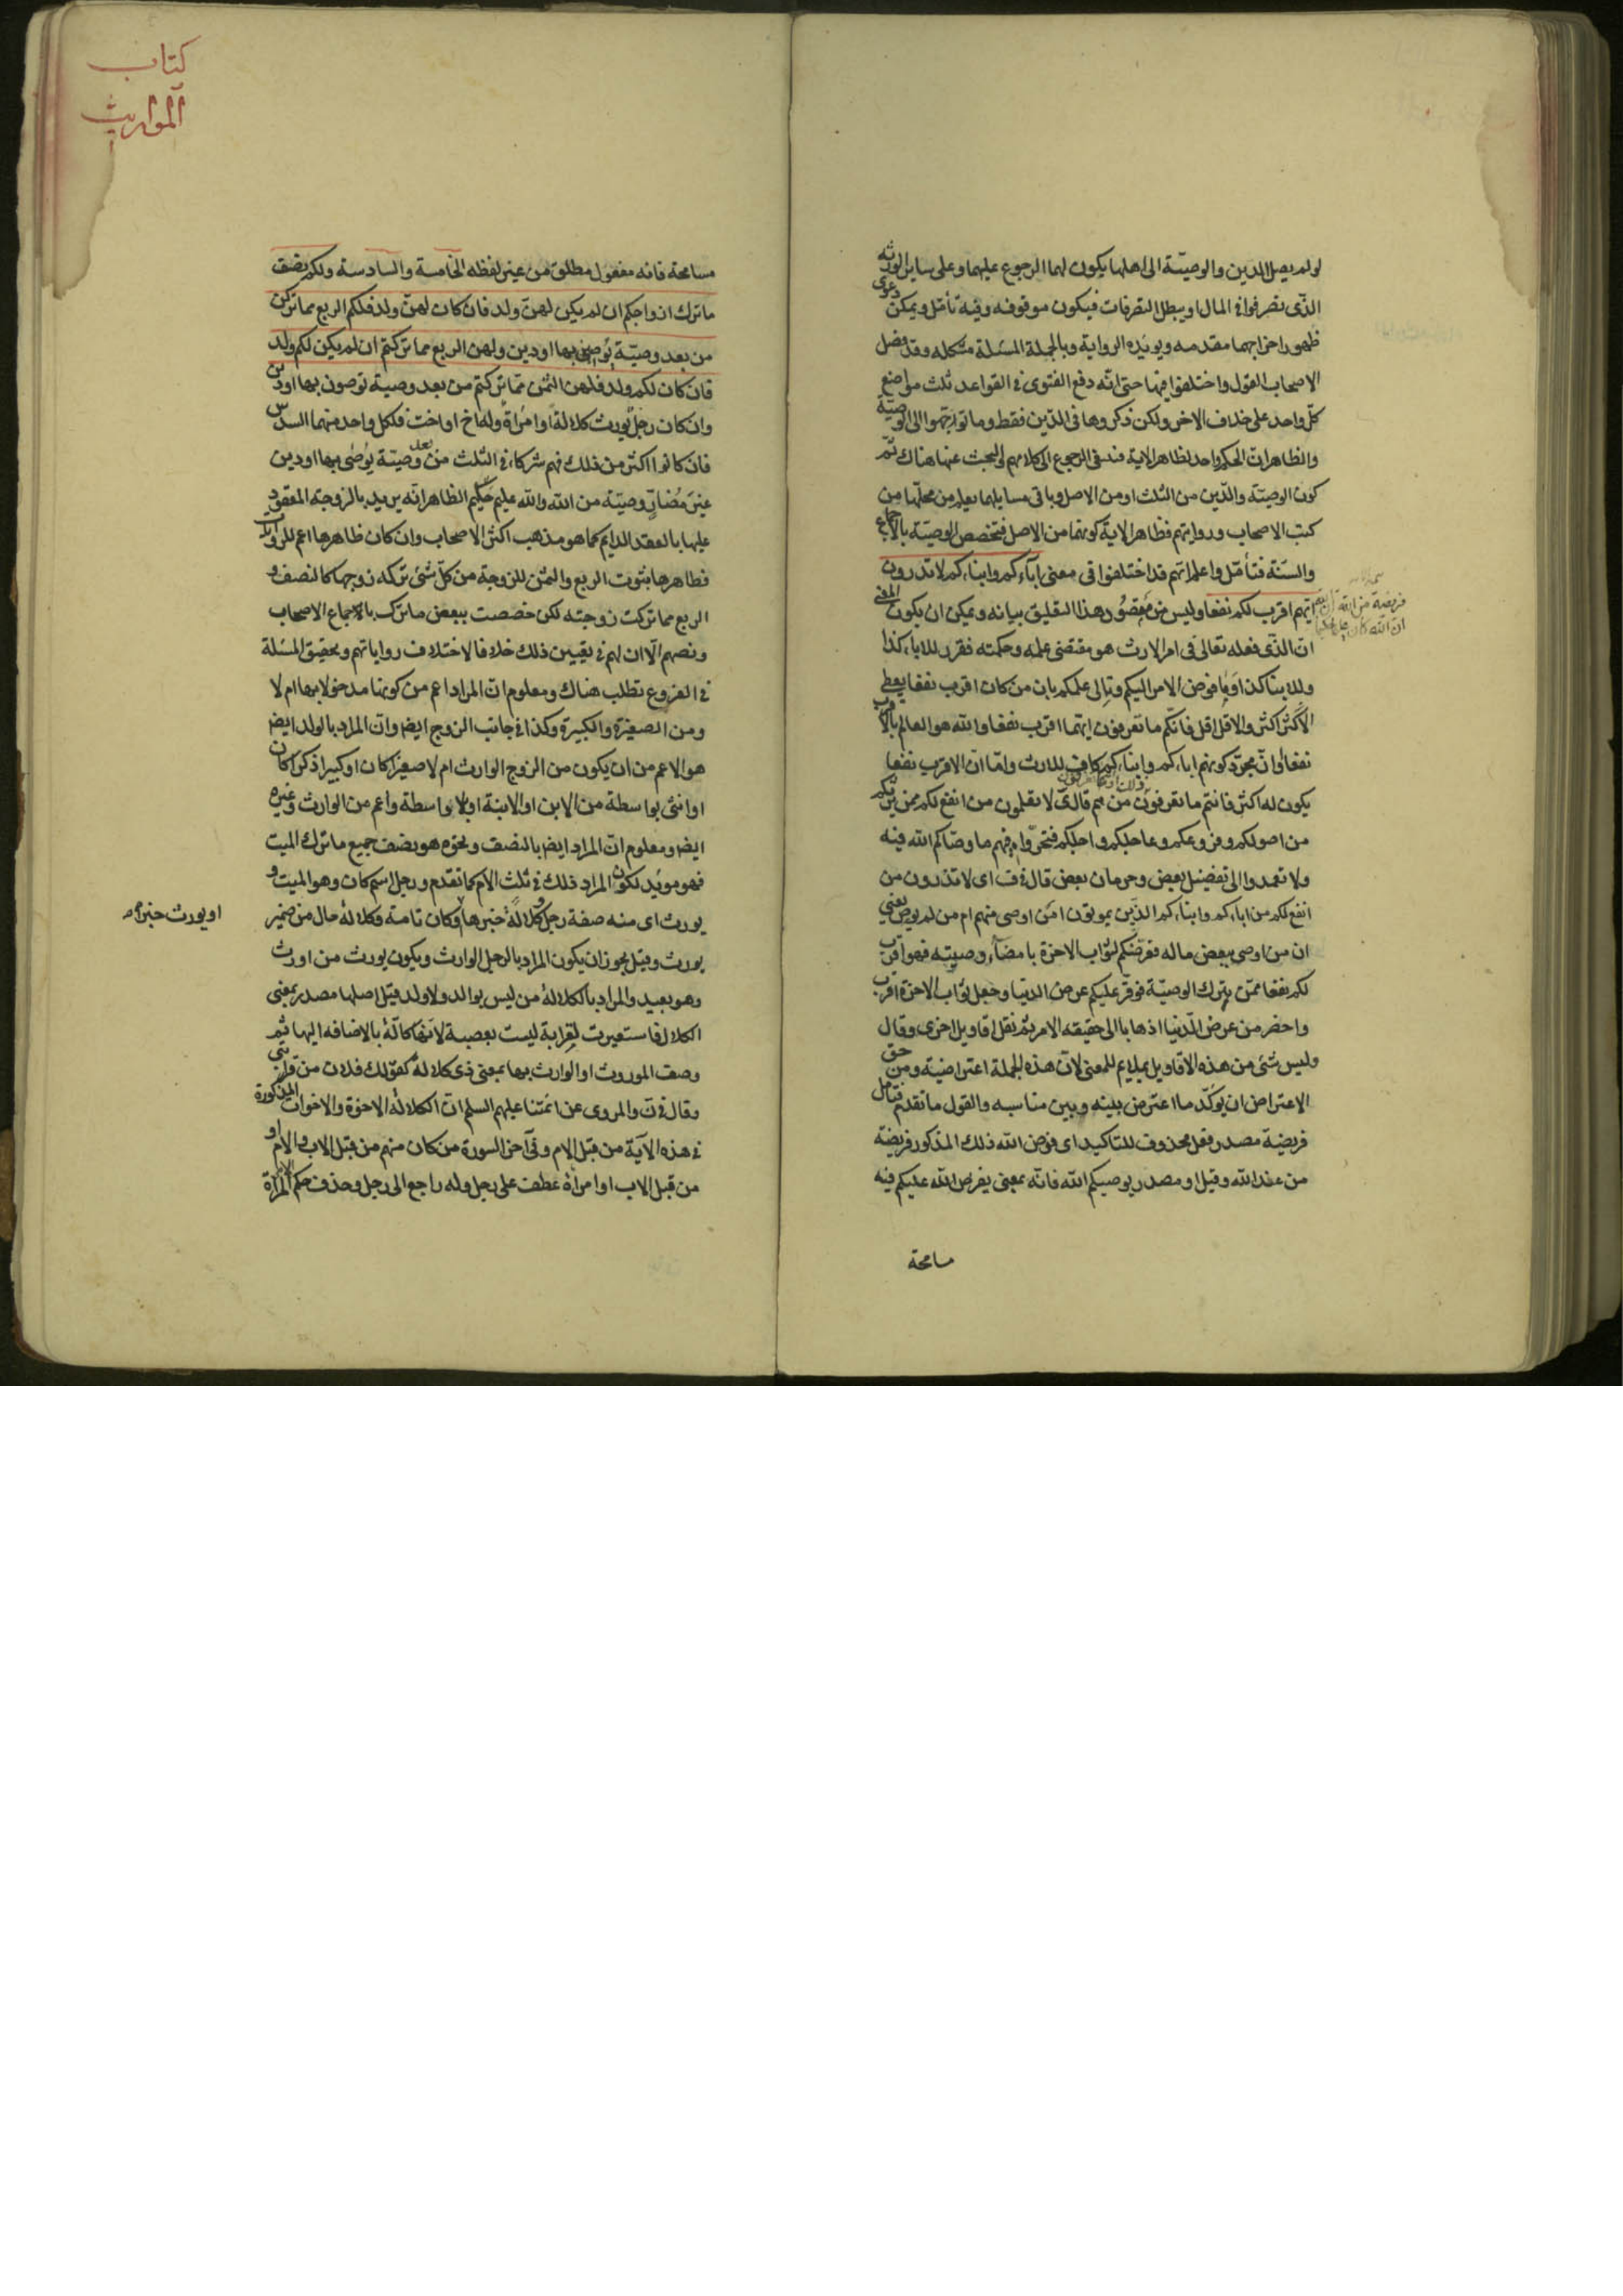 لو لم يصل الدين والوصيّة الى اهلها يكون لهما الرجوع عليهما وعلى ساير الورثة
الذّى تصرفوا فى المال او يبطل التصرفات فيكون موقوفه وفيه تأمّل ويمكن دعوى
ظهور اخراجهما مقدمه ويويّده الرواية وبالجملة المسئلة مشكله وقد فصّل
الاصحاب القول واختلفوا فيها حتى انّه دفع الفتوى فى القواعد ثلث مواضع
كلّ واحد على خلاف الاخر ولكن ذكروها فى الدّين فقط وما توجّهوا الى الوصيّة
والظاهر انّ الحكم واحد لظاهر الاية فينبغى الرجوع الى كلامهم والبحث عنها هناك ثمّ
كون الوصيّة والدّين من الثلث او من الاصل وباقى مسايلهما يعلم من محلّها من
كتب الاصحاب ورواياتهم فظاهر الاية كونهما من الاصل فتخصص الوصيّة بالاجماع
والسّنة فتأمّل واعلم انهم قد اختلفوا فى معنى اباؤكم وابناءكم لا تدرون
ايّهم اقرب لكم نفعا وليس من مقصود هذا التعليق بيانه ويمكن ان يكون المعنى
فريضة من الله
ان الله كان عليما حكيما
انّ الذّى فعله تعالى فى امر الارث هو مقتضى علمه وحكمته فقرر للاباء كذا
وللابناء كذا وما فوض الامر اليكم والى علمكم بان من كان اقرب نفعا يعطى
الاكثر اكثر والاقل اقل فانكم ما تعرفون ايّهما اقرب نفعا والله هو العالم بالاقرب
نفعا وانّ مجرّد كونهم اباءكم وابناءكم كاف للارث وامّا انّ الاقرب نفعا
يكون له اكثر فانتم ما تعرفون من هم قال ى لا تعلمون من انفع لكم ممن يرثكم
من اصولكم وفروعكم وعاجلكم واجلكم فتحرّوا فيهم ما وصّاكم الله فيه
ولا تعمدوا الى تفضيل بعض وحرمان بعض قال فى ف اى لا تدرون من
انفع لكم من اباءكم وابناءكم الذّين يموتون امن اوصى منهم ام من لم يوص يعنى
ان من اوصى ببعض ماله فعرّضكم لثواب الاخرة بامضاء وصيته فهو اقرب
لكم نفعا ممّن يترك الوصيّة فوفّر عليكم عرض الدنيا وجعل ثواب الاخرة اقرب
واحضر من عرض الدّنيا اذهابا الى حقيقه الامر ثم نقل اقاويل اخرى وقال
وليس شئ من هذه الاقاويل بملايم للمعنى لانّ هذه الجملة اعتراضيّة ومن حق
الاعتراض ان يوكّد ما اعترض بينه وبين مناسبه والقول ما تقدم فتأمل
فريضة مصدر فعل محذوف للتاكيد اى فرض الله ذلك المذكور فريضة
من عند الله وقيل او مصدر يوصيكم الله فانّه بمعنى يفرض الله عليكم فيه
مسامحة
كتاب
المواريث
مسامحة فانه مفعول مطلق من غير لفظه الخامسة والسادسة ولكم نصف
ما ترك ازواجكم ان لم يكن لهنّ ولد فان كان لهنّ ولد فلكم الربع مما تركن
من بعد وصيّة يوصين بها او دين ولهن الربع مما تركتم ان لم يكن لكم ولد
فان كان لكم ولد فلهن الثمن ممّا تركتم من بعد وصية توصون بها او دين
وان كان رجل يورث كلالة او امراة وله اخ او اخت فلكل واحد منهما السدس
فان كانوا اكثر من ذلك فهم شركاء فى الثلث من بعد وصيّة يوصى بها او دين
غير مُضارّ وصيّة من الله والله عليم حكيم الظاهر انّه يريد بالزوجة المعقود
عليها بالعقد الدايم كما هو مذهب اكثر الاصحاب وان كان ظاهرها اعم للروايات
فظاهرها ثبوت الربع والثمن للزوجة من كلّ شئ تركه زوجها كالنصف و
الربع مما تركت زوجته لكن خصصت ببعض ما ترك بالاجماع الاصحاب
ونصهم الّا ان لهم فى تعيين ذلك خلافا لاختلاف رواياتهم وتحقيق المسئلة
فى الفروع تطلب هناك ومعلوم انّ المراد اعم من كونها مدخولا بها ام لا
ومن الصغيرة والكبيرة وكذا فى جانب الزوج ايضا وانّ المراد بالولد ايضا
هو الاعم من ان يكون من الزوج الوارث ام لا صغيرا كان او كبيرا ذكرا كان
او انثى بواسطة من الابن او الابنة او بلا واسطة واعم من الوارث وغيره
ايضا ومعلوم انّ المراد ايضا بالنصف ونحوه هو نصف جميع ما ترك الميت
فهو مويد لكون المراد ذلك فى ثلث الام كما تقدم ورجل اسم كان وهو الميت و
يورث اى منه صفة رجل وكلالةً خبرها او كان تامة وكلالة حال من ضمير
او يورث خبر
يورث وقيل يجوز ان يكون المراد بالرجل الوارث ويكون يورث من اورث
وهو بعيد والمراد بالكلالة من ليس بوالد ولا ولد قيل اصلها مصدر بمعنى
الكلال فاستعيرت لقرابة ليست بعصبية لانها كالّة بالاضافه اليها ثم
وصف الموروث او الوارث بها بمعنى ذى كلالة كقولك فلان من قرابتى
وقال فى ن والمروى عن ائمّتنا عليهم السلم انّ الكلالة الاخوة والاخوات المذكورة
فى هذه الآية من قبل الام وفى آخر السورة من كان منهم من قبل الاب والام او
من قبل الاب او امراة عطف على رجل وله راجع الى رجل وحذف حكم المراة